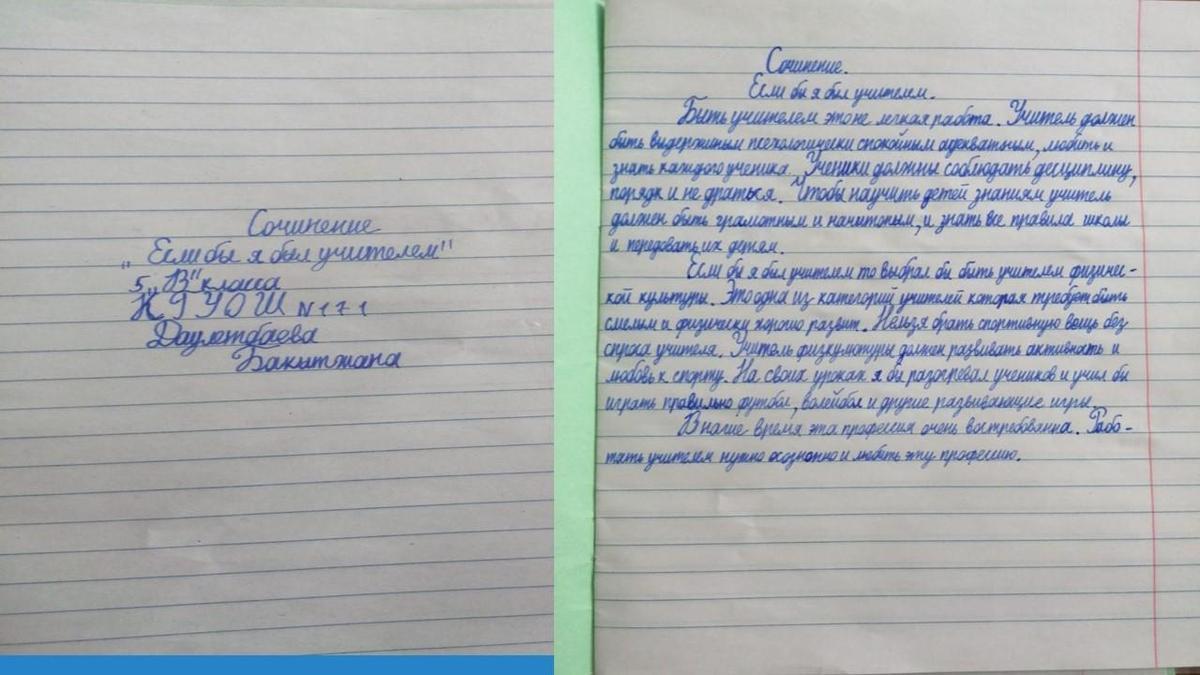 Сочинение
„Если бы я был учителем"
5 „В" класса
КГУОШ №171
Даулетбаева
Бакытжана
Сочинение.
Если бы я был учителем.
Быть учителем это не легкая работа. Учитель должен
быть выдержаным психологически спокойным адекватным, любить и
знать каждого ученика. Ученики должны соблюдать десциплину,
порядк и не драться. Чтобы научить детей знаниям учитель
должен быть грамотным и начитоным, и знать все правила школы
и передовать их детям.
Если бы я был учителем то выбрал бы быть учителем физичес-
кой культуры. Это одна из категорий учителей которая тугебует быть
смелым и физически хорошо развит. Нельзя брать спортивную вещь без
спроса учителя. Учитель физкультуры должен развивать активнать и
любовь к спорту. На своих уроках я бы разогревал учеников и учил бы
играть правильно футбол, волейбол и другие развивающие игры.
В наше время эта профессия очень востребованна. Рабо-
тать учителем нужно осознонно и любить эту профессию.